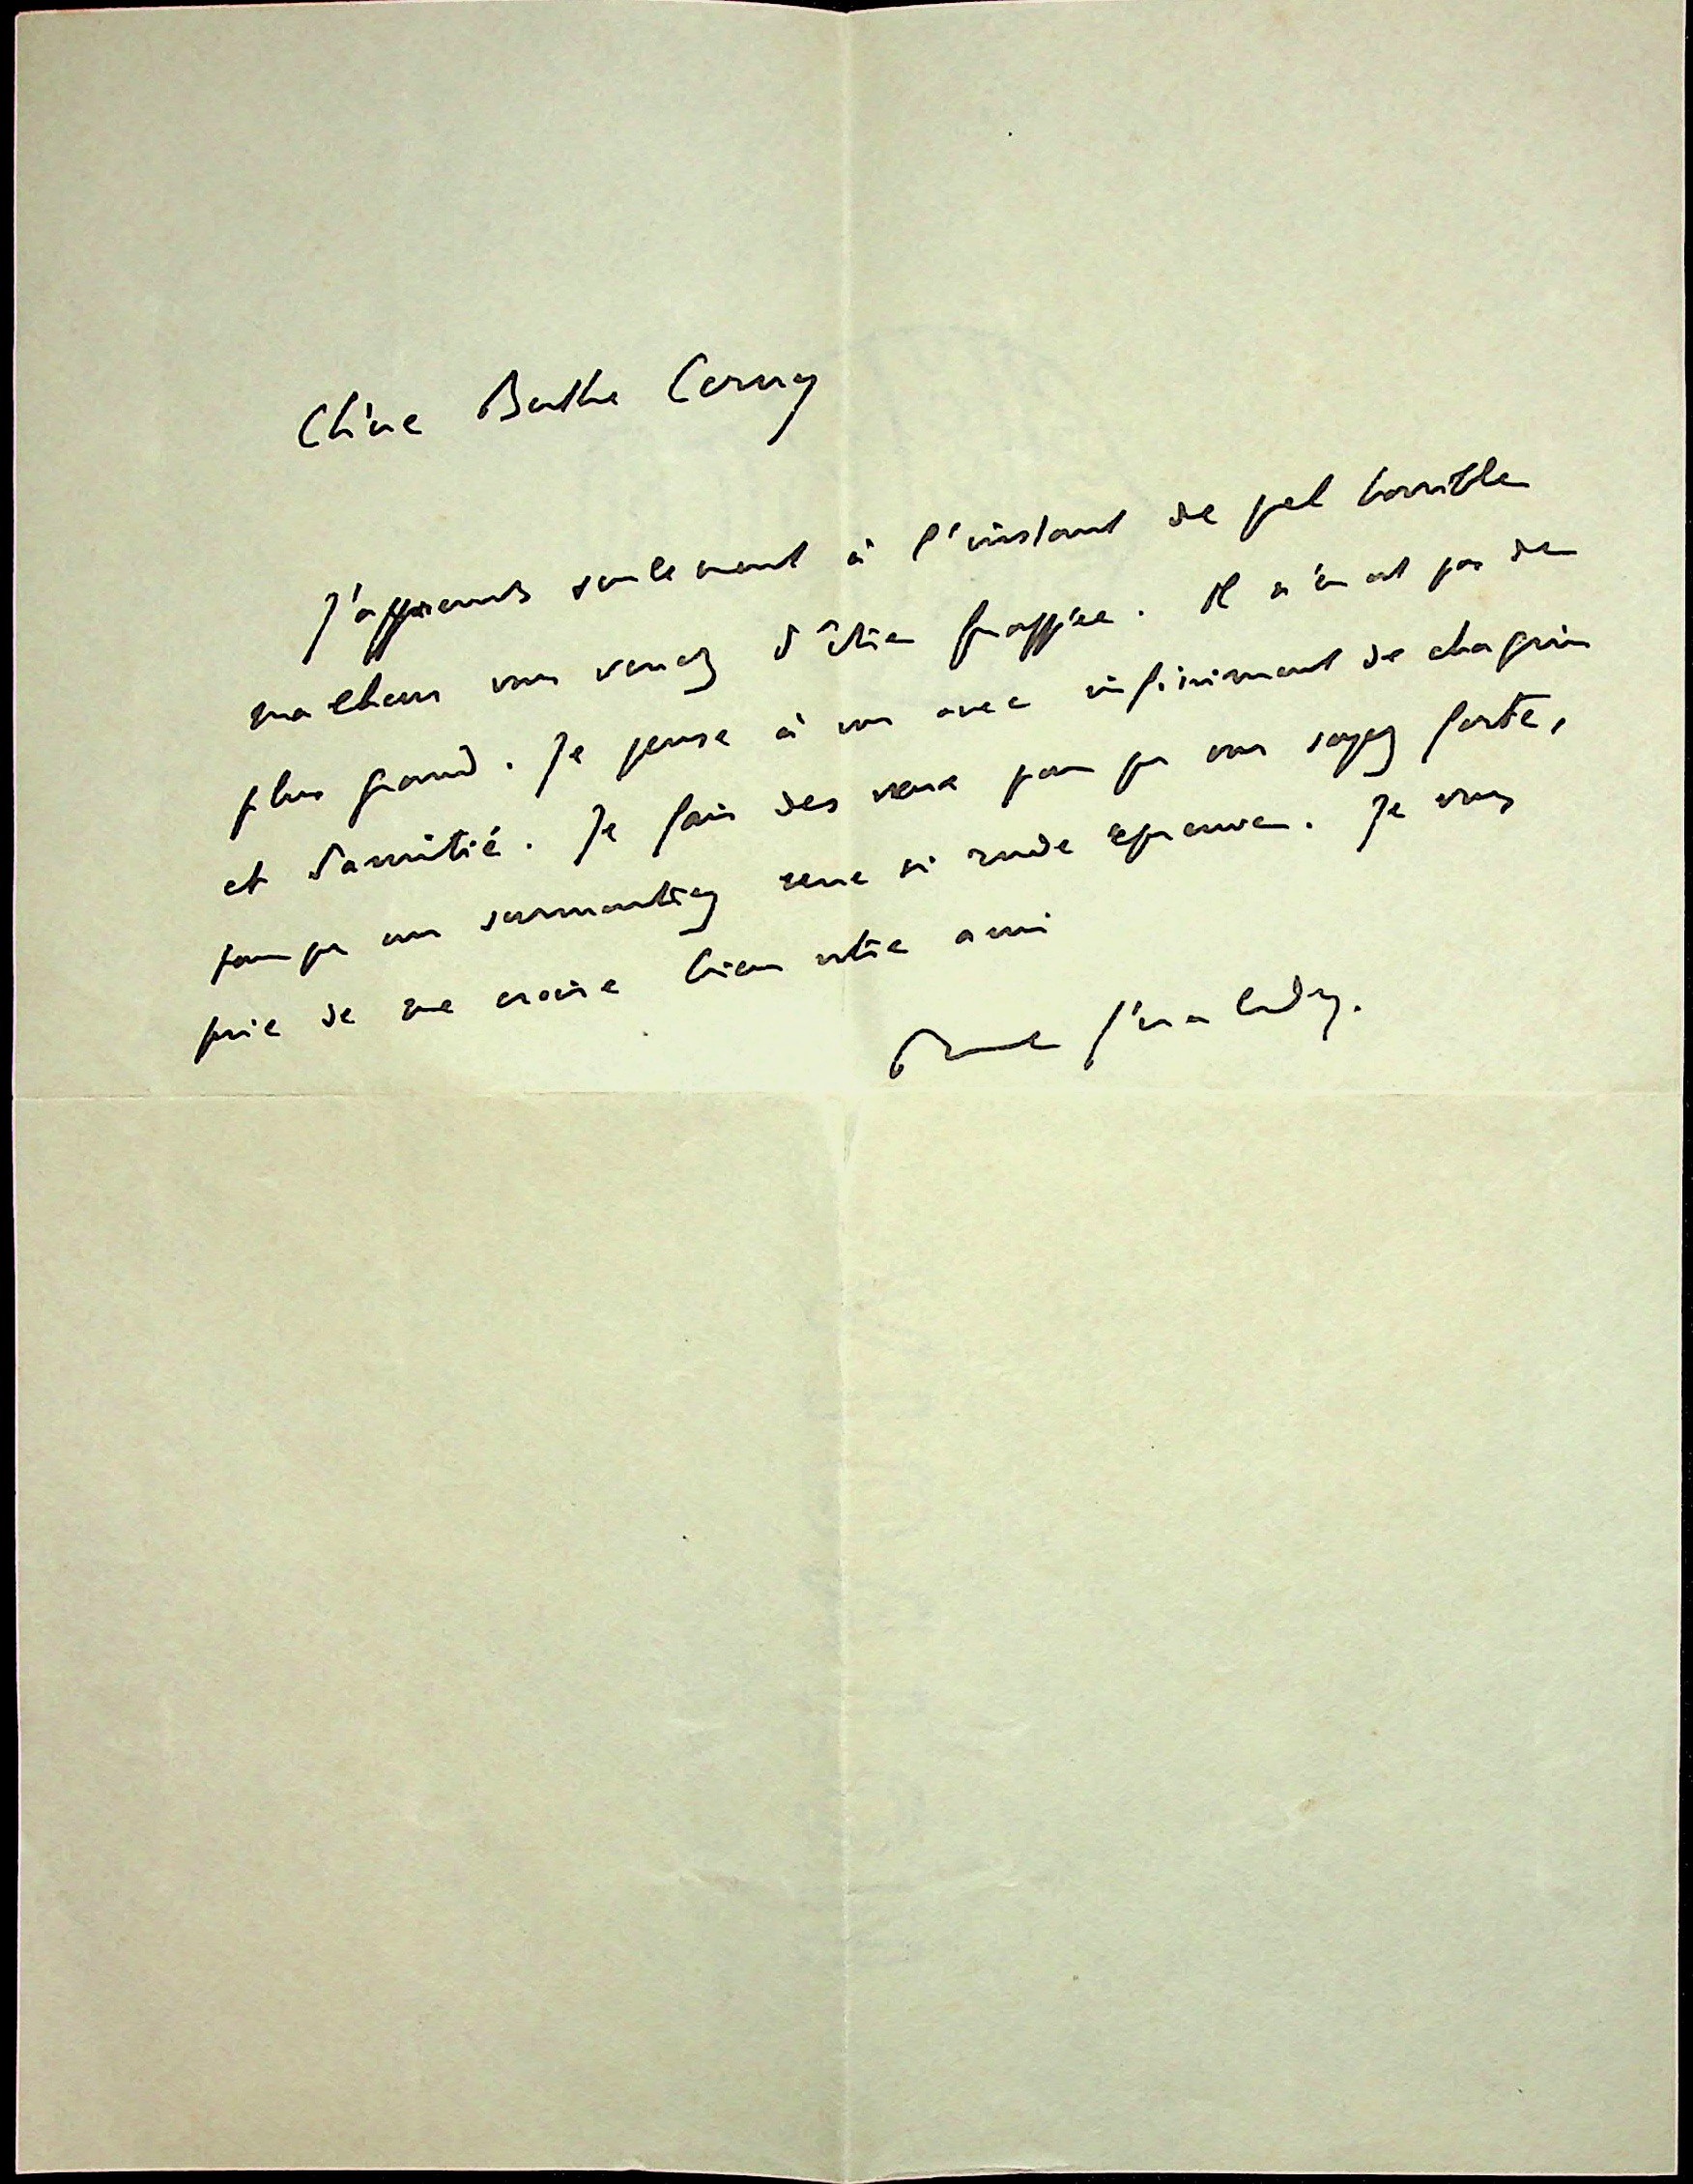 Chère Berthe Cerny
J'apprends seulement à l'instant de quel horrible
malheur vous venez d'être frappée. Il n'en est pas de
plus grand. Je pense à vous avec infiniment de chagrin
et d'amitié. Je fais des vœux pour que vous soyez forte,
pour que vous surmontiez une si rude épreuve. Je vous
prie de me croire bien votre ami